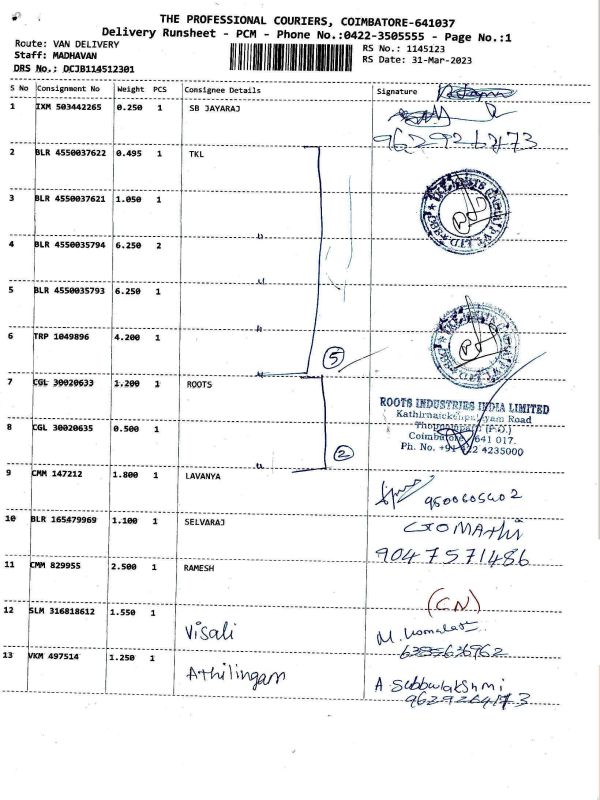 THE PROFESSIONAL COURIERS, COIMBATORE-641037
Delivery Runsheet - PCM - Phone No.:0422-3505555 - Page No.:1
Route: VAN DELIVERY
RS No.: 1145123
Staff: MADHAVAN
RS Date: 31-Mar-2023
DRS No.: DCJB114512301
S No Consignment No Weight PCS Consignee Details Signature
1 IXM 503442265 0.250 1 SB JAYARAJ
2 BLR 4550037622 0.495 1 TKL
3 BLR 4550037621 1.050 1
4 BLR 4550035794 6.250 2
5 BLR 4550035793 6.250 1
6 TRP 1049896 4.200 1
5
7 CGL 30020633 1.200 1 ROOTS
ROOTS INDUSTRIES INDIA LIMITED
Kathirnaickenpalayam Road
8 CGL 30020635 0.500 1
Coimbatore 641 017.
2
Ph. No. +91 422 4235000
9 CMM 147212 1.800 1 LAVANYA
9500605402
10 BLR 165479969 1.100 1 SELVARAJ
GOMAthi
9047571486
11 CMM 829955 2.500 1 RAMESH
(CN)
12 SLM 316818612 1.550 1
Visali
13 VKM 497514 1.250 1
Athilingam
A Subbulakshmi